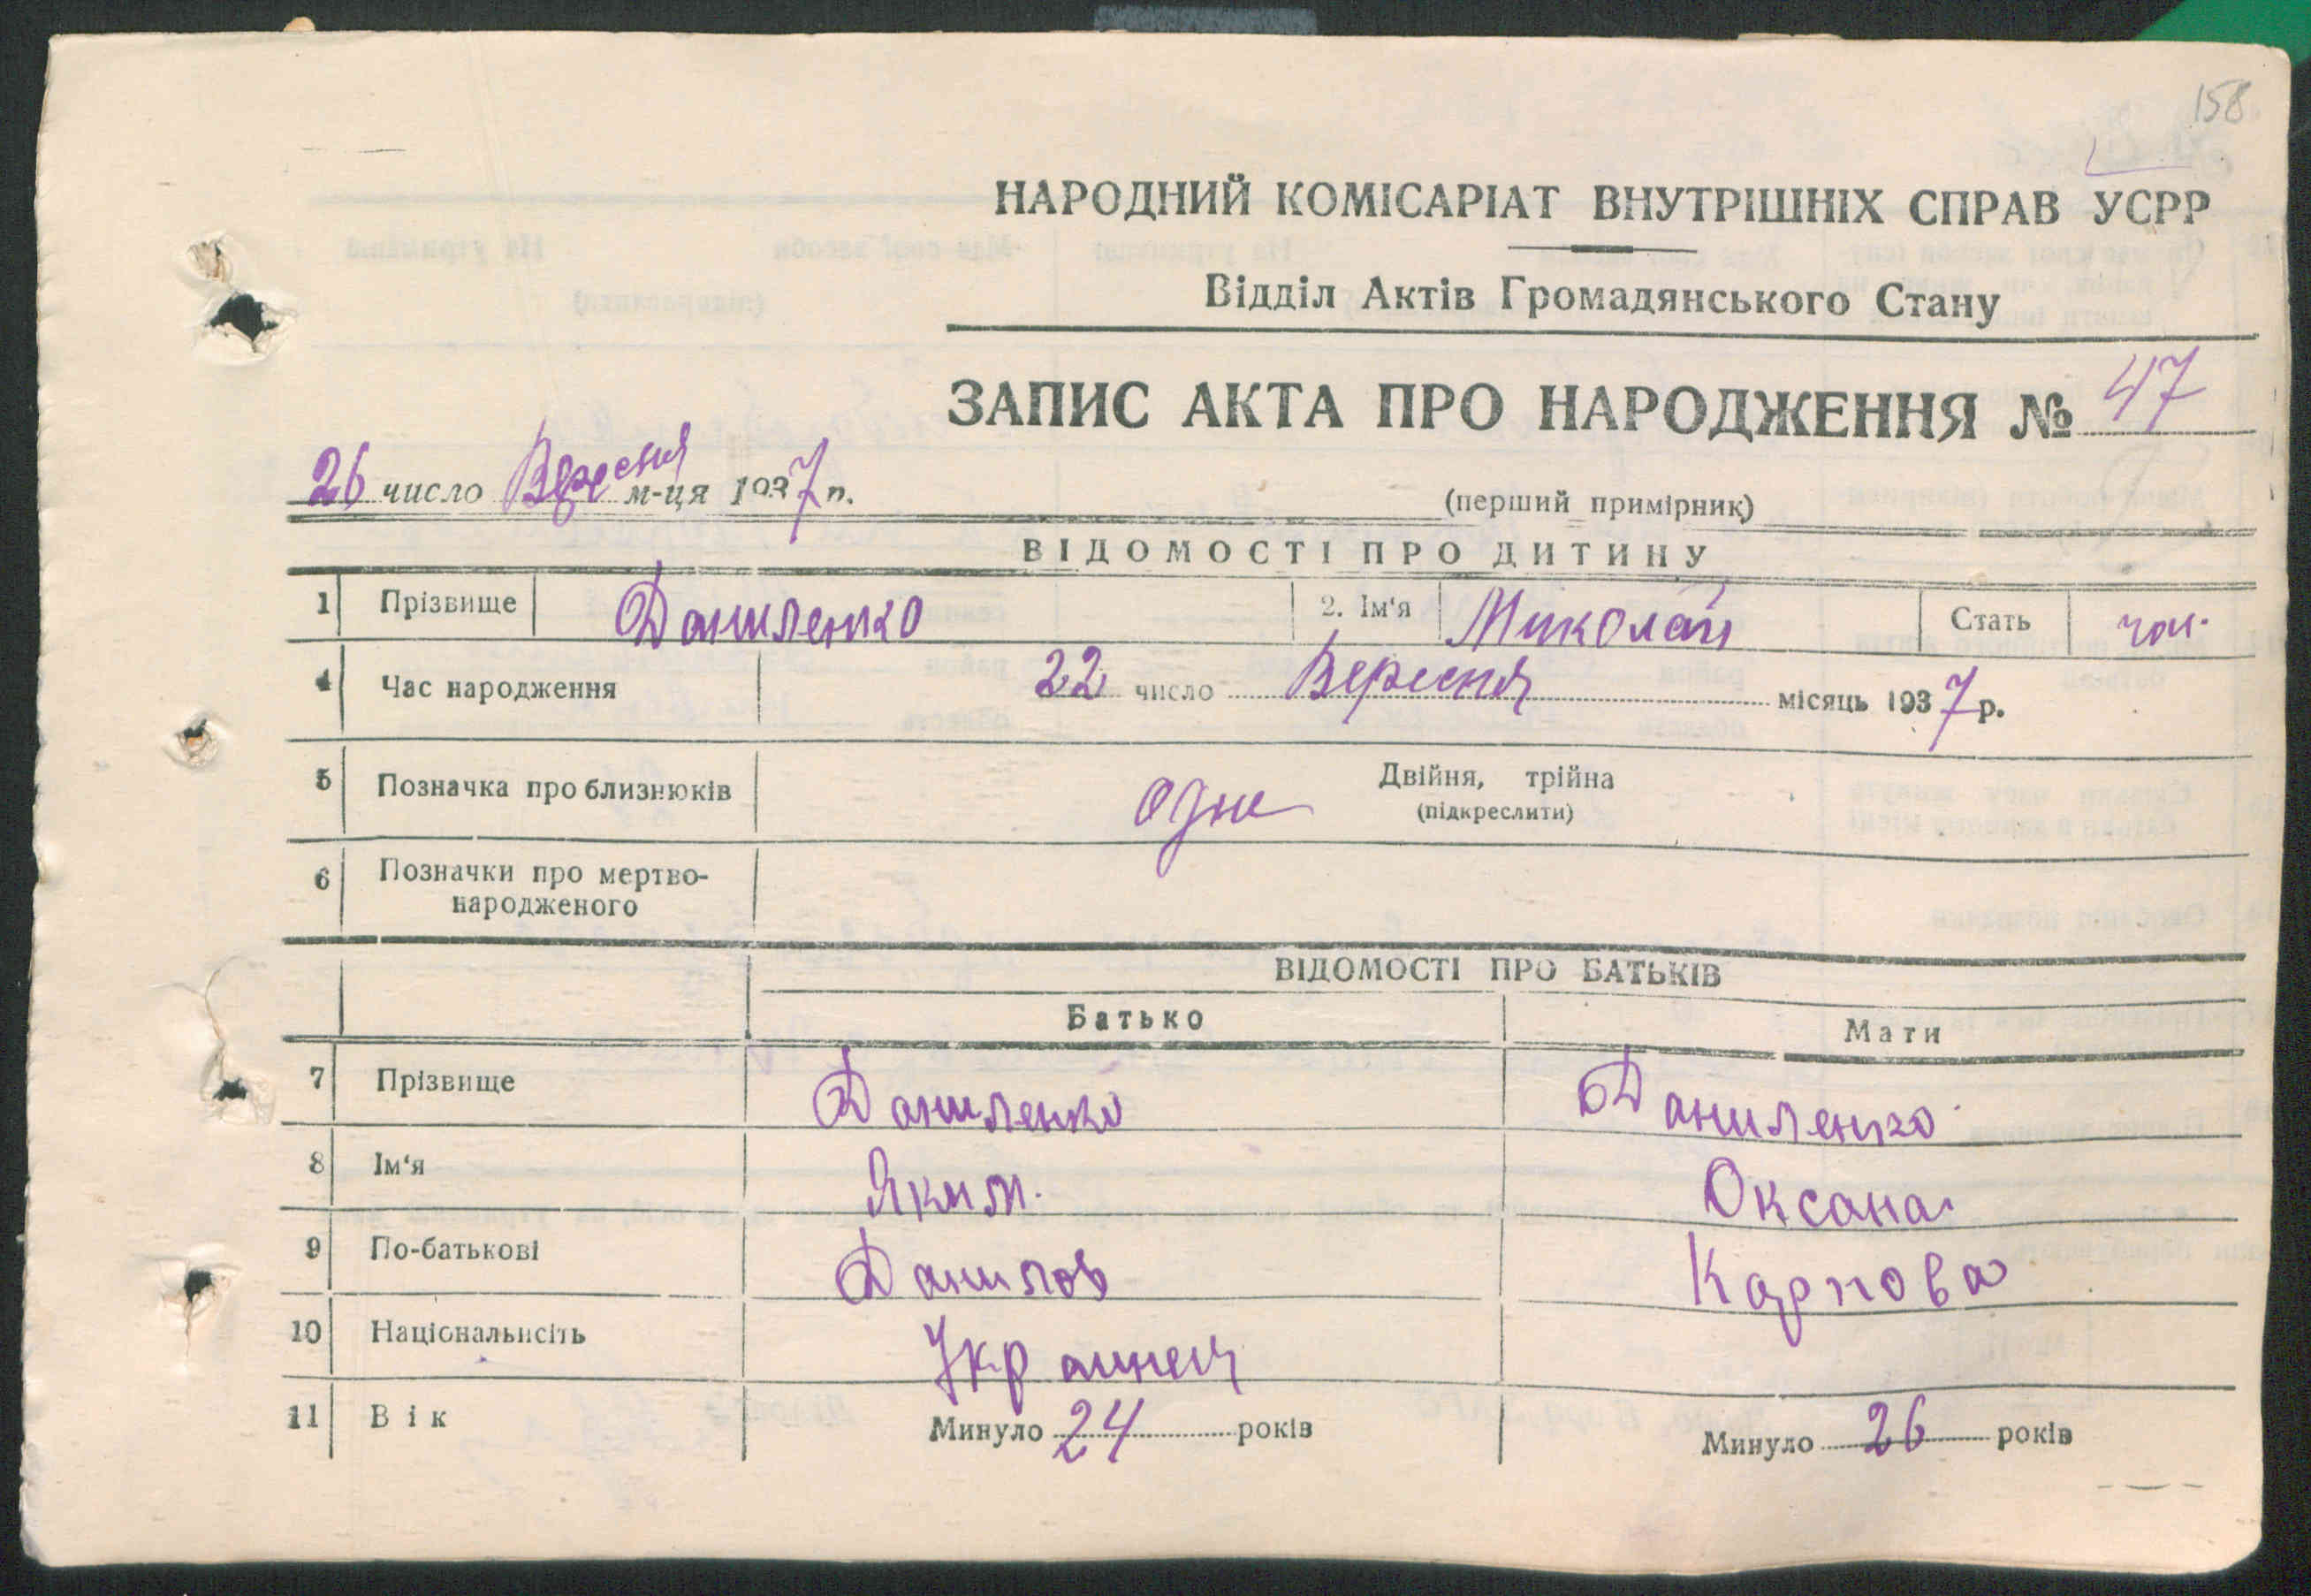 158
НАРОДНИЙ КОМІСАРІАТ ВНУТРІШНІХ СПРАВ УСРР
Відділ Актів Громадянського Стану
ЗАПИС АКТА ПРО НАРОДЖЕННЯ № 47
26 число Вересня м-ця 1937 р.
(перший примірник)
ВІДОМОСТІ ПРО ДИТИНУ
1 Прізвище Даниленко 2. Ім'я Миколай Стать чол.
4 Час народження 22 число Вересня місяць 1937 р.
5 Позначка про близнюків одне Двійня, трійна
(підкреслити)
6 Позначки про мертво-
народженого
ВІДОМОСТІ ПРО БАТЬКІВ
Батько Мати
7 Прізвище Даниленко Даниленко
8 Ім'я Яким. Оксана
9 По-батькові Данилов Карпова
10 Національність Украинец
11 Вік Минуло 24 років Минуло 26 років